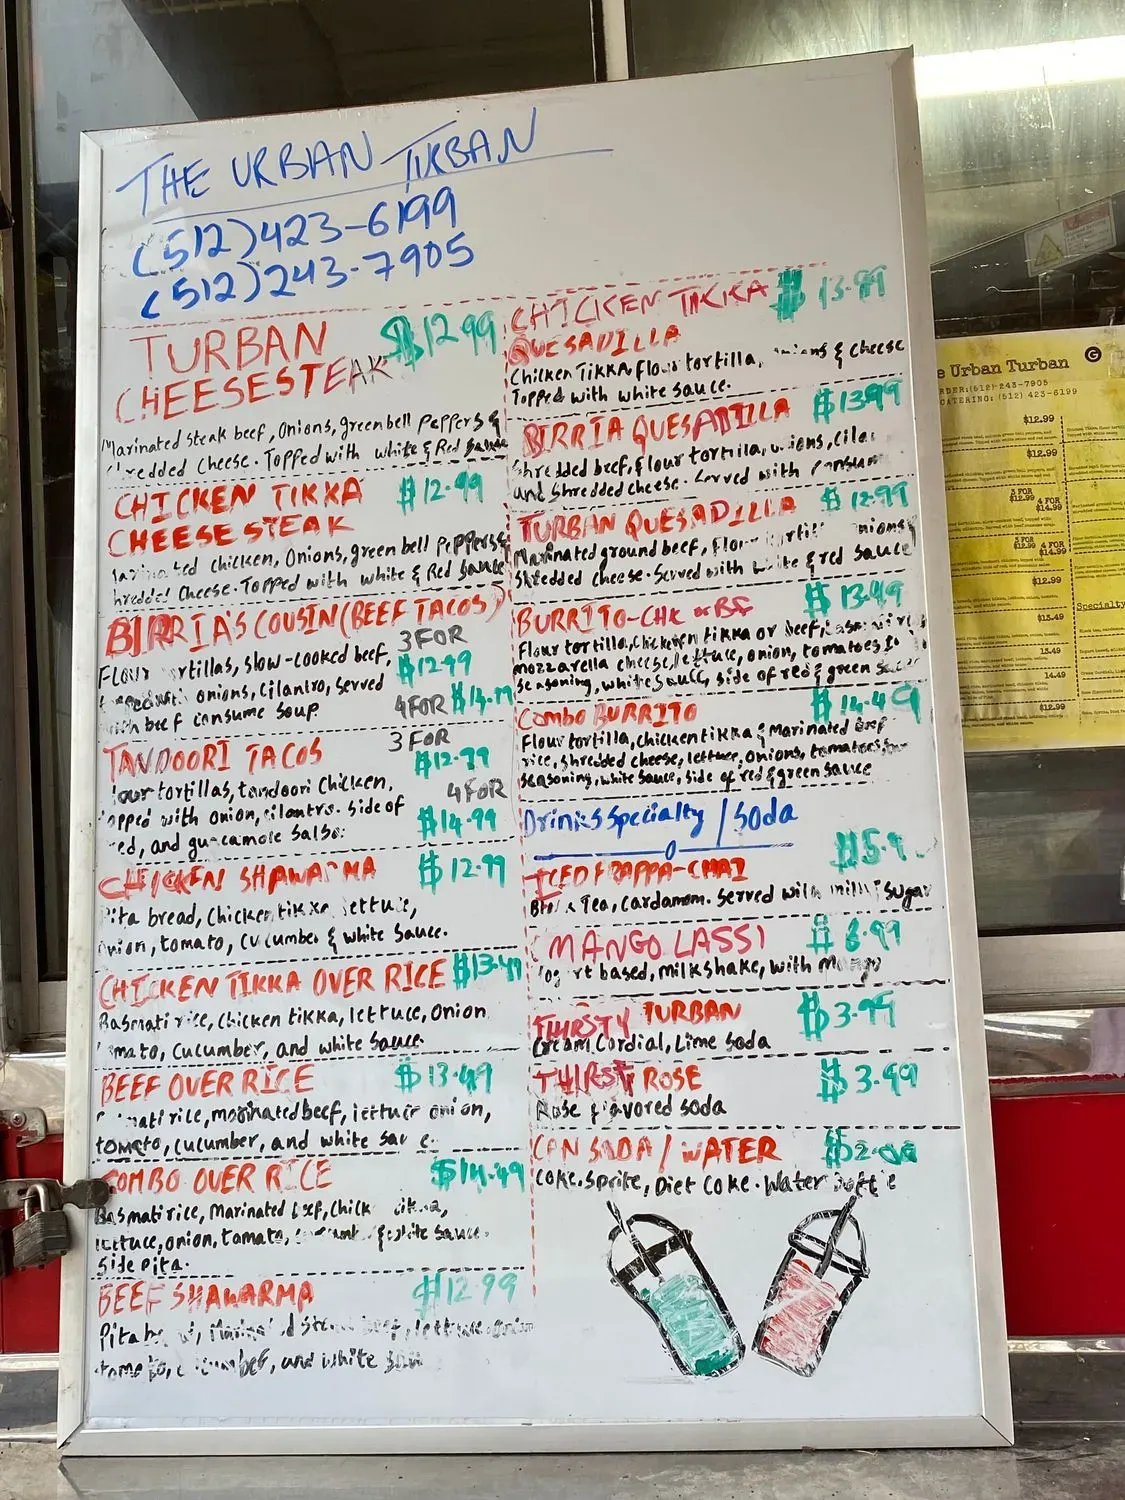 THE URBAN TURBAN
(512)423-6199
(512)243-7905
TURBAN $12.99
CHEESESTEAK
Marinated steak beef, Onions, green bell Peppers &
shredded cheese. Topped with white & Red sauce
CHICKEN TIKKA $12.99
CHEESE STEAK
chicken, Onions, green bell Peppers &
hredded Cheese. Topped with white & Red sauce
BIRRIA'S COUSIN (BEEF TACOS)
3 FOR
Flour tortillas, slow-cooked beef, $12.99
onions, cilantro, served
4 FOR $14.99
with beef consume soup.
TANDOORI TACOS 3 FOR
$12.99
our tortillas, tandoori chicken, 4 FOR
opped with onion, cilantro. side of $14.99
red, and guacamole salsa.
CHICKEN SHAWARMA $12.99
Pita bread, chicken tikka, lettuce,
onion, tomato, cucumber & white sauce.
CHICKEN TIKKA OVER RICE $13.49
Basmati rice, chicken tikka, lettuce, onion
omato, cucumber, and white sauce.
BEEF OVER RICE $13.49
mati rice, marinated beef, lettuce onion,
tomato, cucumber, and white sau e.
COMBO OVER RICE $14.49
Basmati rice, Marinated beef, Chick
lettuce, onion, tomato, & white sauce.
Side Pita.
BEEF SHAWARMA $12.99
Pita beef, lettuce, onion
tomato, and white
CHICKEN TIKKA $13.99
QUESADILLA
Chicken TIKKA, flour tortilla, onions & cheese
Topped with white sauce.
BIRRIA QUESADILLA $13.99
Shredded beef, flour tortilla, onions, cila
and shredded cheese. Served with consum
TURBAN QUESADILLA $12.99
Marinated ground beef, Flour tortill onions
Shredded cheese. Served with white & red sauce
BURRITO-CHK or BF $13.49
Flour tortilla, chicken tikka or beef,
mozzarella cheese, lettuce, onion, tomatoes
seasoning, white sauce, side of red & green sauce
Combo BURRITO $14.49
Flour tortilla, chicken tikka & Marinated Beef
rice, shredded cheese, lettuce, onions, tomatoes,
seasoning, white sauce, side of red & green sauce
Drinks specialty / Soda
ICED FRAPPA-CHAI $5.9
Black Tea, cardamom. Served with milk, sugar
MANGO LASSI $ 6.99
Yogurt based, milkshake, with Mango
THIRSTY TURBAN $3.99
Cream Cordial, Lime Soda
THIRSTY ROSE $3.99
Rose flavored soda
CAN SODA / WATER $2.00
Coke. Sprite, Diet Coke. Water Bottle
e Urban Turban
RDER:(512)-243-7905
CATERING: (512) 423-6199
$12.99
$12.99
3 FOR
$12.99 4 FOR
$14.99
3 FOR
$12.99 4 FOR
$14.99
$12.99
13.49
13.49
14.49
$12.99
Specialty